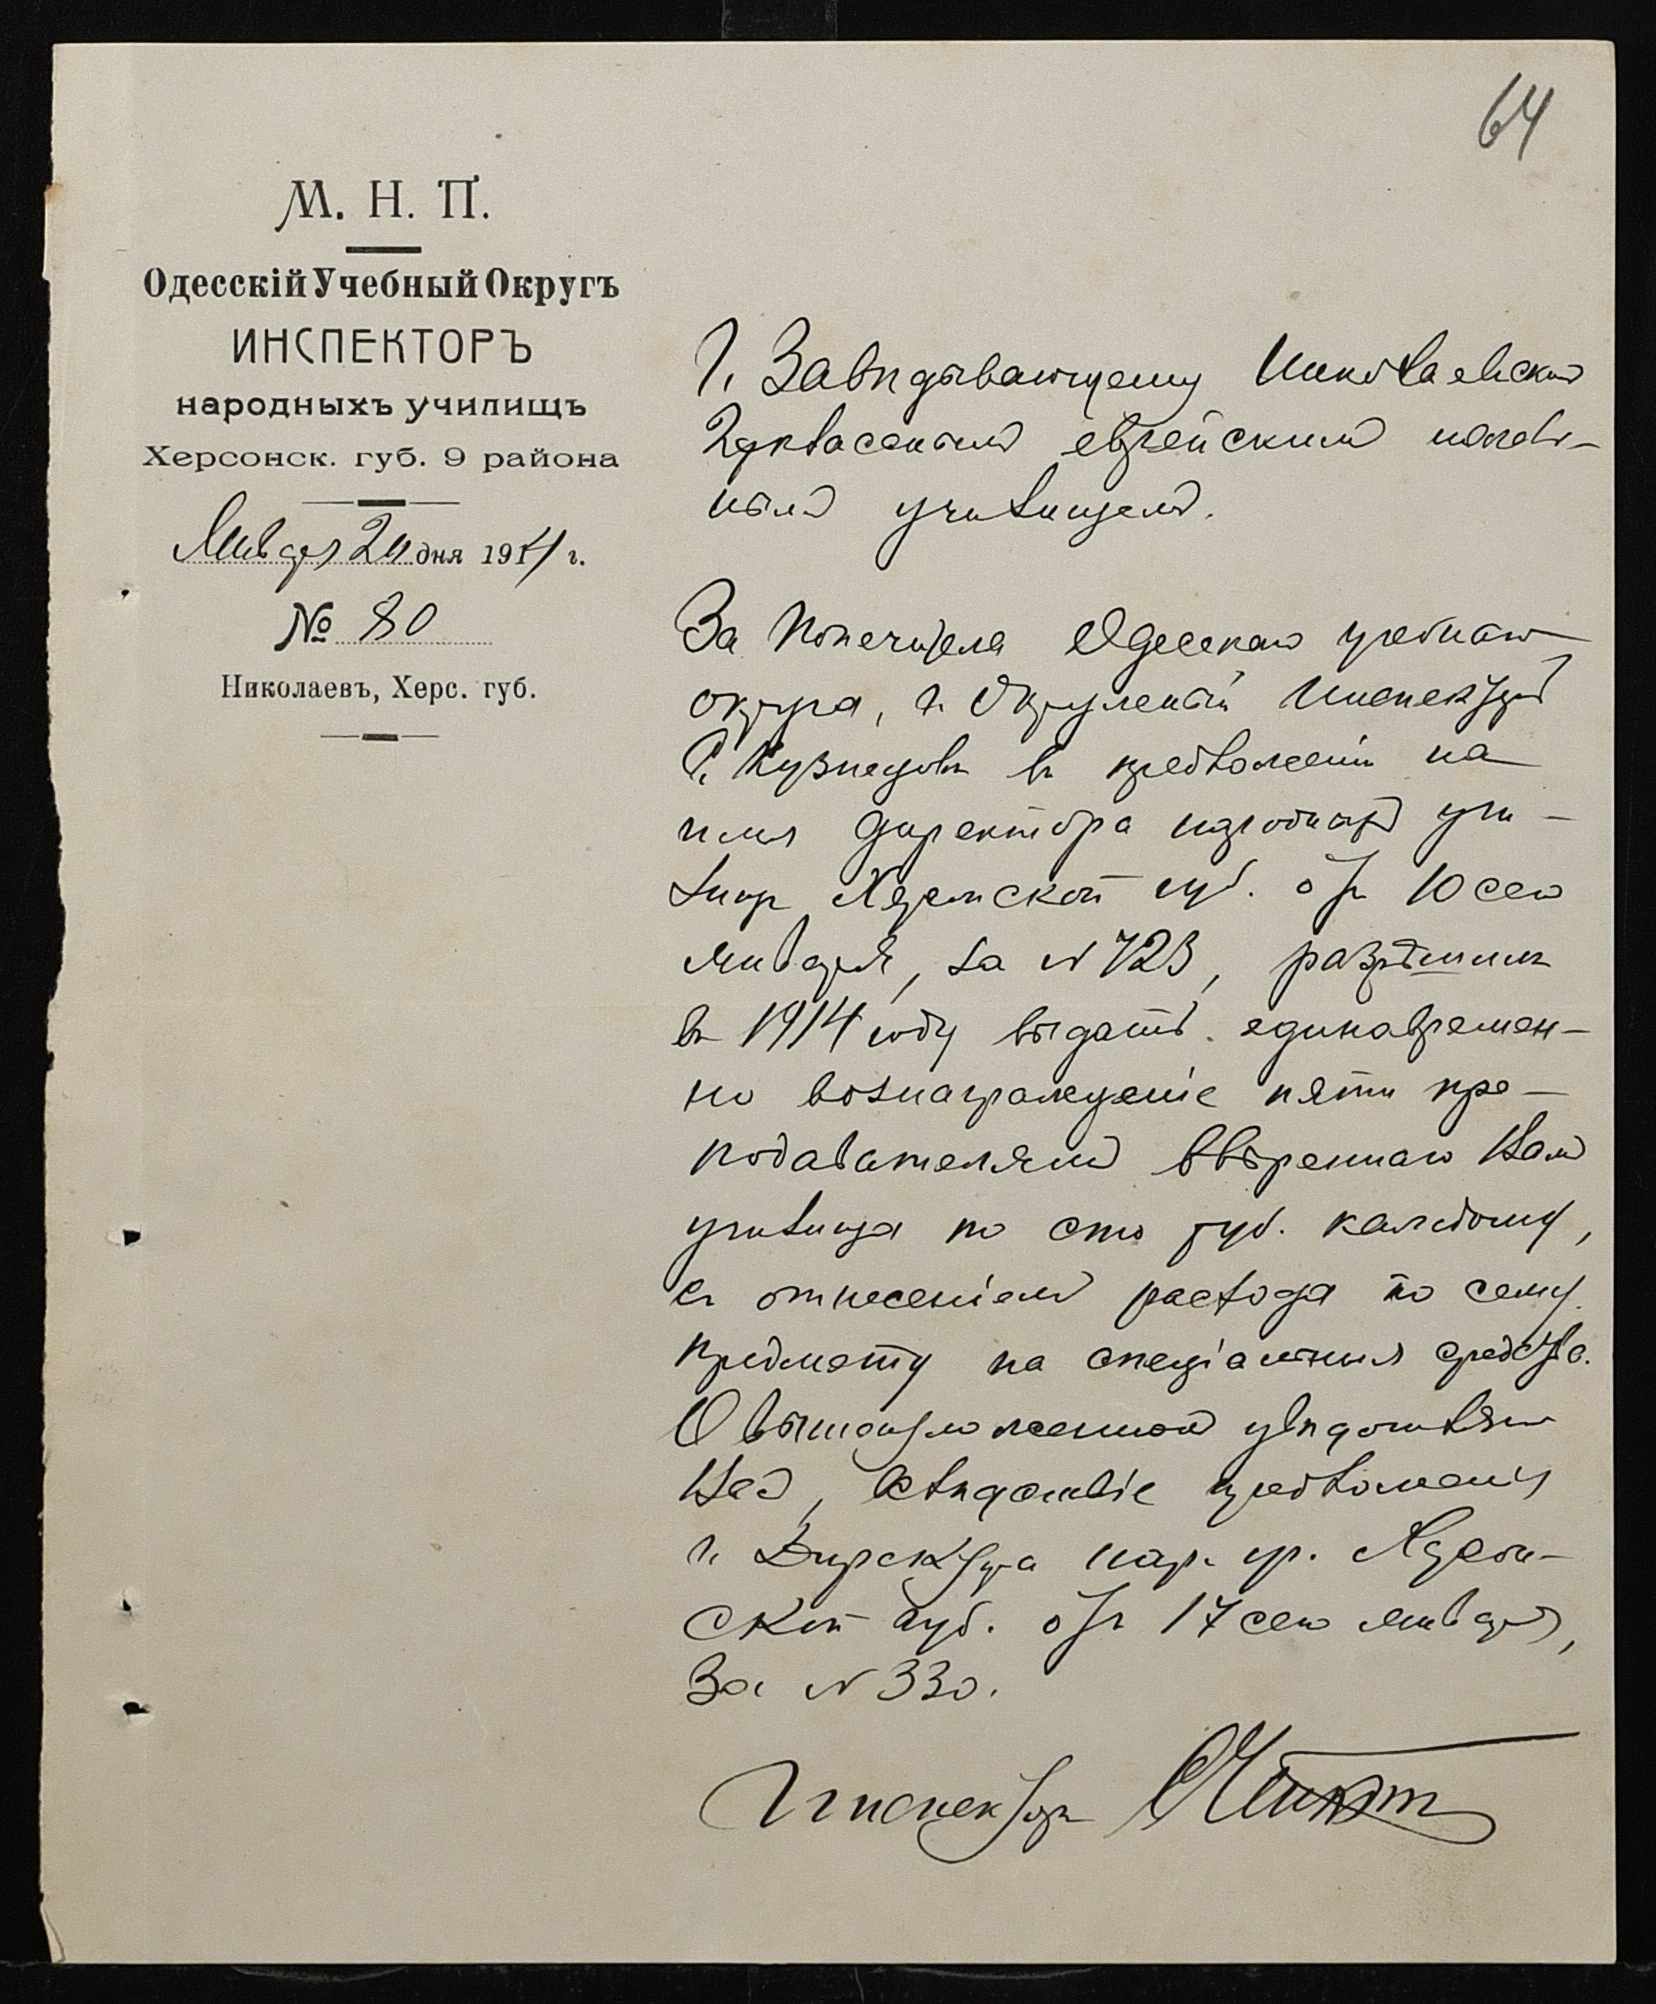 64
М. Н. П.
Одесскій Учебный Округъ
ИНСПЕКТОРЪ
народныхъ училищъ
Херсонск. губ. 9 района
Января 20 дня 1914 г.
№ 80
Николаевъ, Херс. губ.
Г. Завѣдывающему Николаевскимъ
2хкласснымъ еврейскимъ началь-
нымъ училищемъ.
За Попечителя Одесскаго учебнаго
округа, г. Окружный Инспекторъ
Г. Кузнецовъ въ предложеніи на
имя Директора народныхъ учи-
лищъ Херсонской губ. отъ 10 сего
января, за № 723, разрѣшилъ
въ 1914 году выдать единовремен-
но вознагражденіе пяти пре-
подавателямъ ввѣреннаго Вамъ
училища по сто руб. каждому,
съ отнесеніемъ расхода по сему
предмету на спеціальныя средства.
О вышеизложенномъ увѣдомляю
Васъ, вслѣдствіе предложенія
г. Директора нар. уч. Херсон-
ской губ. отъ 17 сего января,
за № 330.
Инспекторъ